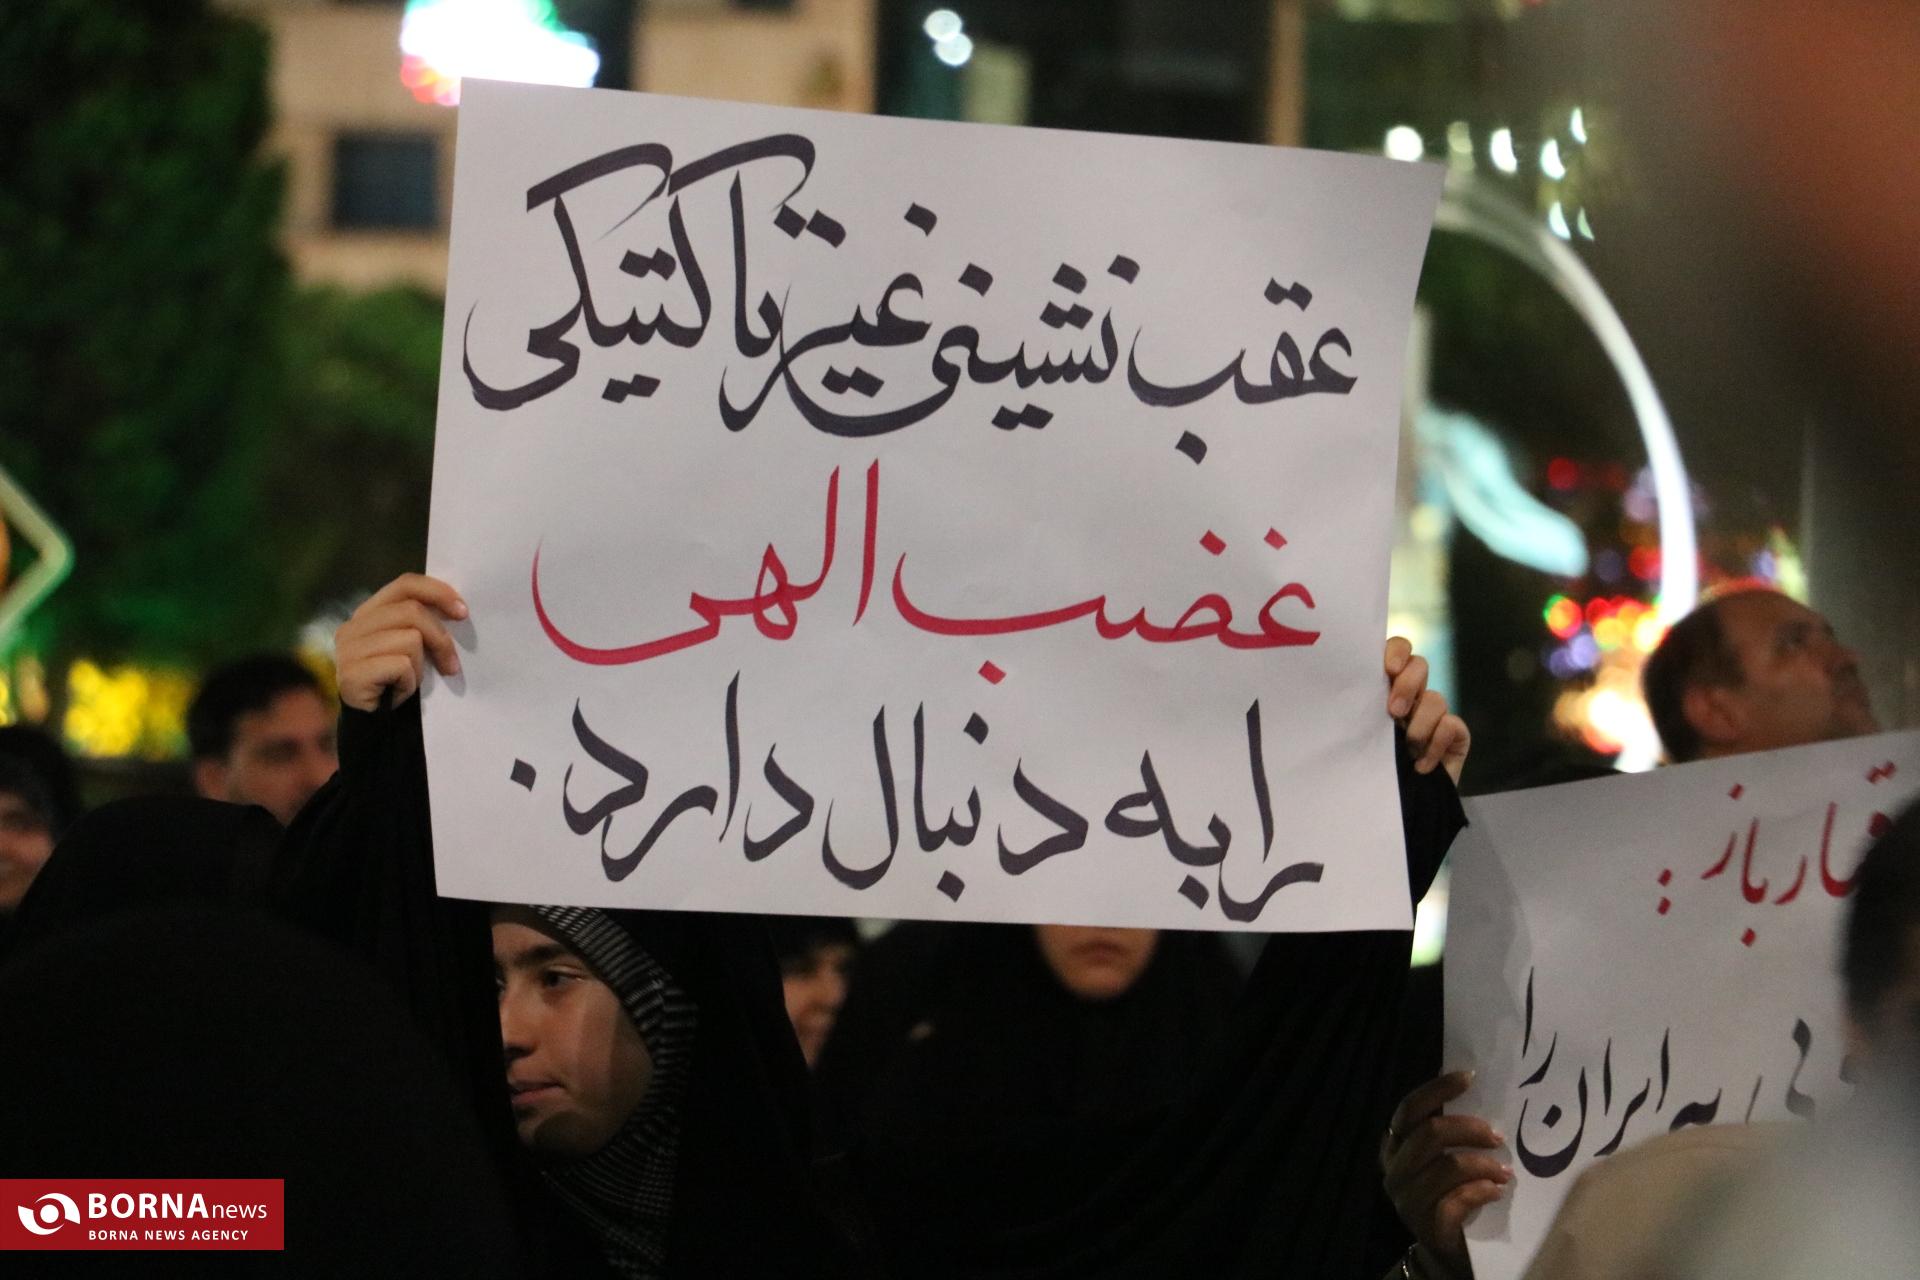 عقب نشینی غیر تاکتیکی
غضب الهی
را به دنبال دارد.
باز :
به ایران را
BORNAnews
BORNA NEWS AGENCY